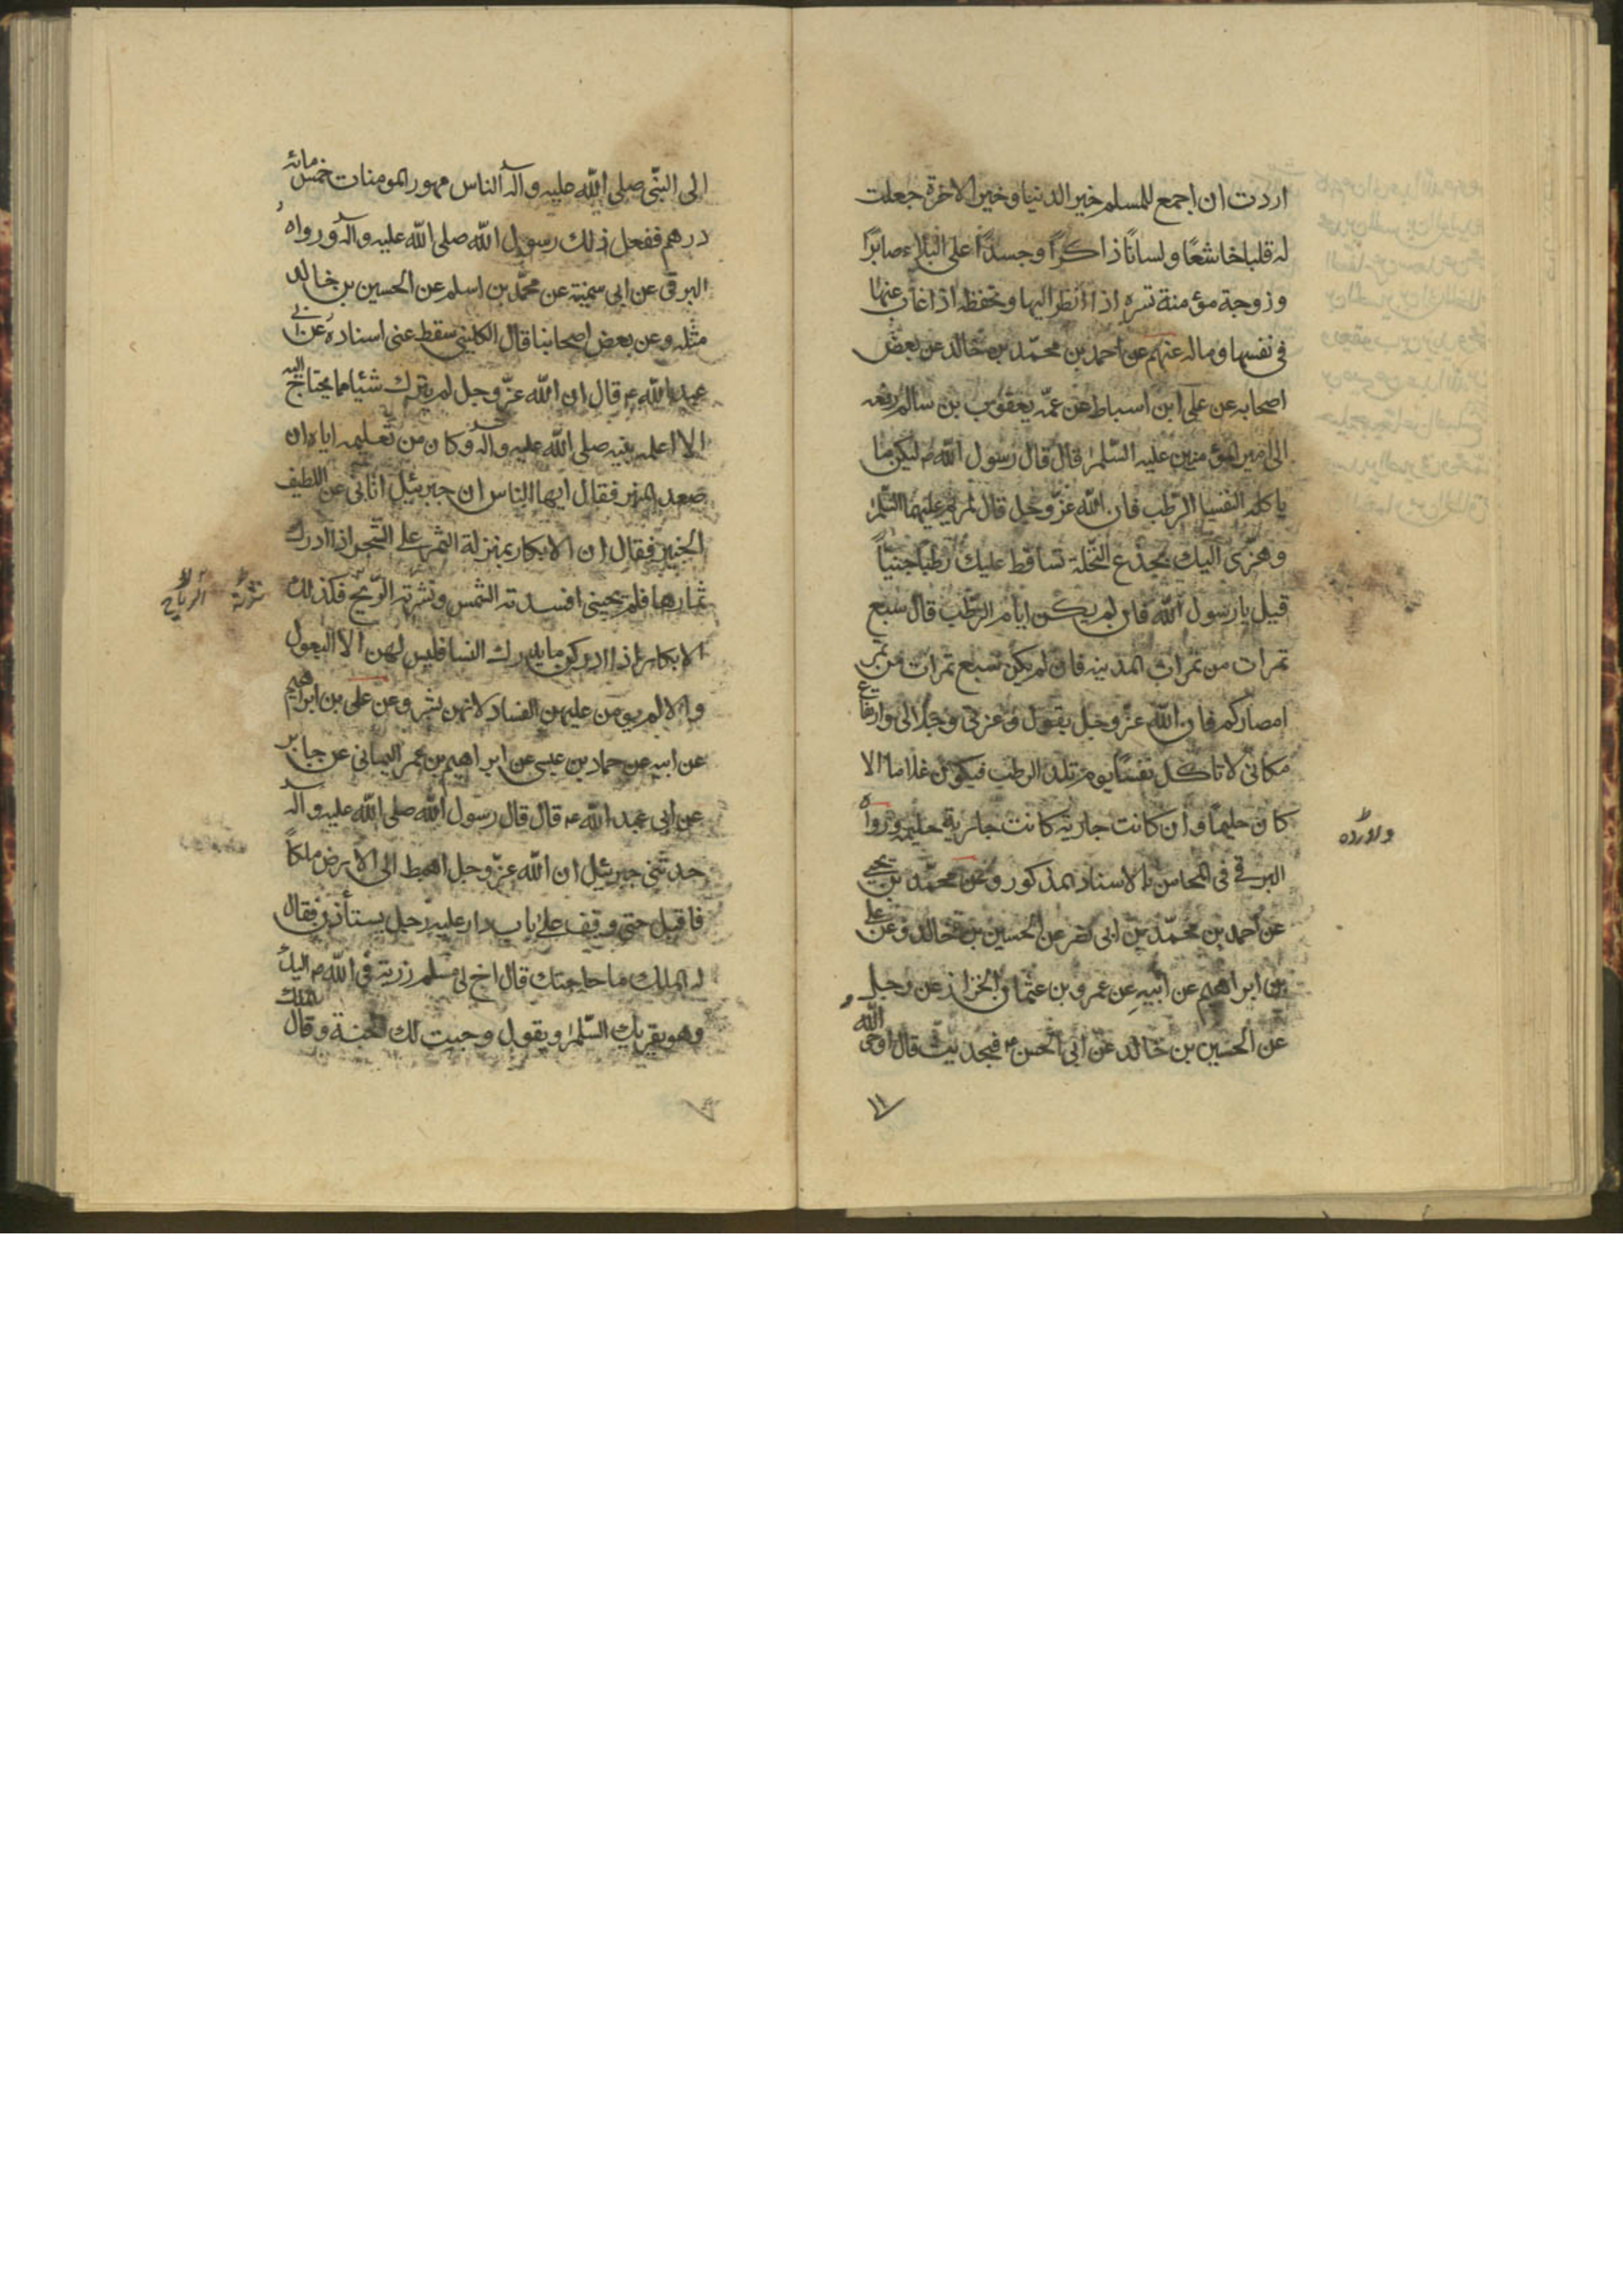 اردت ان اجمع للمسلم خير الدنيا وخير الاخرة جعلت
له قلبا خاشعًا ولسانًا ذاكرًا وجسدًا على البلاء صابرًا
وزوجة مؤمنة تسره اذا انظر اليها وتحفظه اذا غاب عنها
فى نفسها وماله عنهم عن احمد بن محمّد بن خالد عن بعض
اصحابه عن على ابن اسباط عن عمّه يعقوب بن سالم رفعه
الى امير المؤمنين عليه السّلم قال قال رسول الله ص ليكن ما
ياكله النفسا الرّطب فان الله عزّ وجل قال لمريم عليهما السّلم
وهزّى اليك بجذع النّخلة تساقط عليك رطبا جنيّاً
قيل يا رسول الله فان لم يكن ايام الرّطب قال سبع
تمرات من تمرات المدينه فان لم يكن تسبع تمرات من تمر
امصاركم فان الله عزّ وجل يقول وعزتى وجلالى وارتفاع
مكانى لا تاكل نفسا يوم تلد الرطب فيكون غلاما الا
كان حليمًا وان كانت جارية كانت جارية حليمه ورواه
البرقى فى المحاسن بالاسناد المذكور وعن محمّد بن يحيى
عن احمد بن محمّد بن ابى نصر عن الحسين بن خالد وعن على
بن ابراهيم عن ابيه عن عمرو بن عثمان الخزاز عن رجل
عن الحسين بن خالد عن ابى الحسن ع فى حديث قال اوحى الله
١١
الى النبّى صلى الله عليه وآله الناس مهور المومنات خمس مائة
درهم ففعل ذلك رسول الله صلى الله عليه وآله ورواه
البرقى عن ابى سمينه عن محمّد بن اسلم عن الحسين بن خالد
مثله وعن بعض اصحابنا قال الكلينى سقط عنى اسناده عن ابى
عبد الله ع قال ان الله عزّ وجل لم يترك شيئا مما يحتاج اليه
الا اعلمه نبيه صلى الله عليه وآله وكان من تعليمه اياه ان
صعد المنبر فقال ايها الناس ان جبرئيل اتانى عن اللطيف
الخبير فقال ان الابكار بمنزلة الثمر على الشجر اذا ادرك
ثمارها فلم يجينى افسدته الشمس ونثرته الرّيح فكذلك
نثرته الرياح
الابكار اذا ادركن ما يدرك النسا فليس لهن الا البعول
والا لم يومن عليهن الفساد لانهن بشر وعن على بن ابراهيم
عن ابيه عن حماد بن عيسى عن ابراهيم بن عمر اليمانى عن جابر
عن ابى عبد الله ع قال قال رسول الله صلى الله عليه وآله
حدثنى جبرئيل ان الله عزّ وجل اهبط الى الارض ملكاً
فاقبل حتى وقف على باب دار عليه رجل يستأذن فقال
له الملك ما حاجتك قال اخ لى مسلم زرته فى الله
وهو يقريك السّلم ويقول وجبت لك الجنة وقال